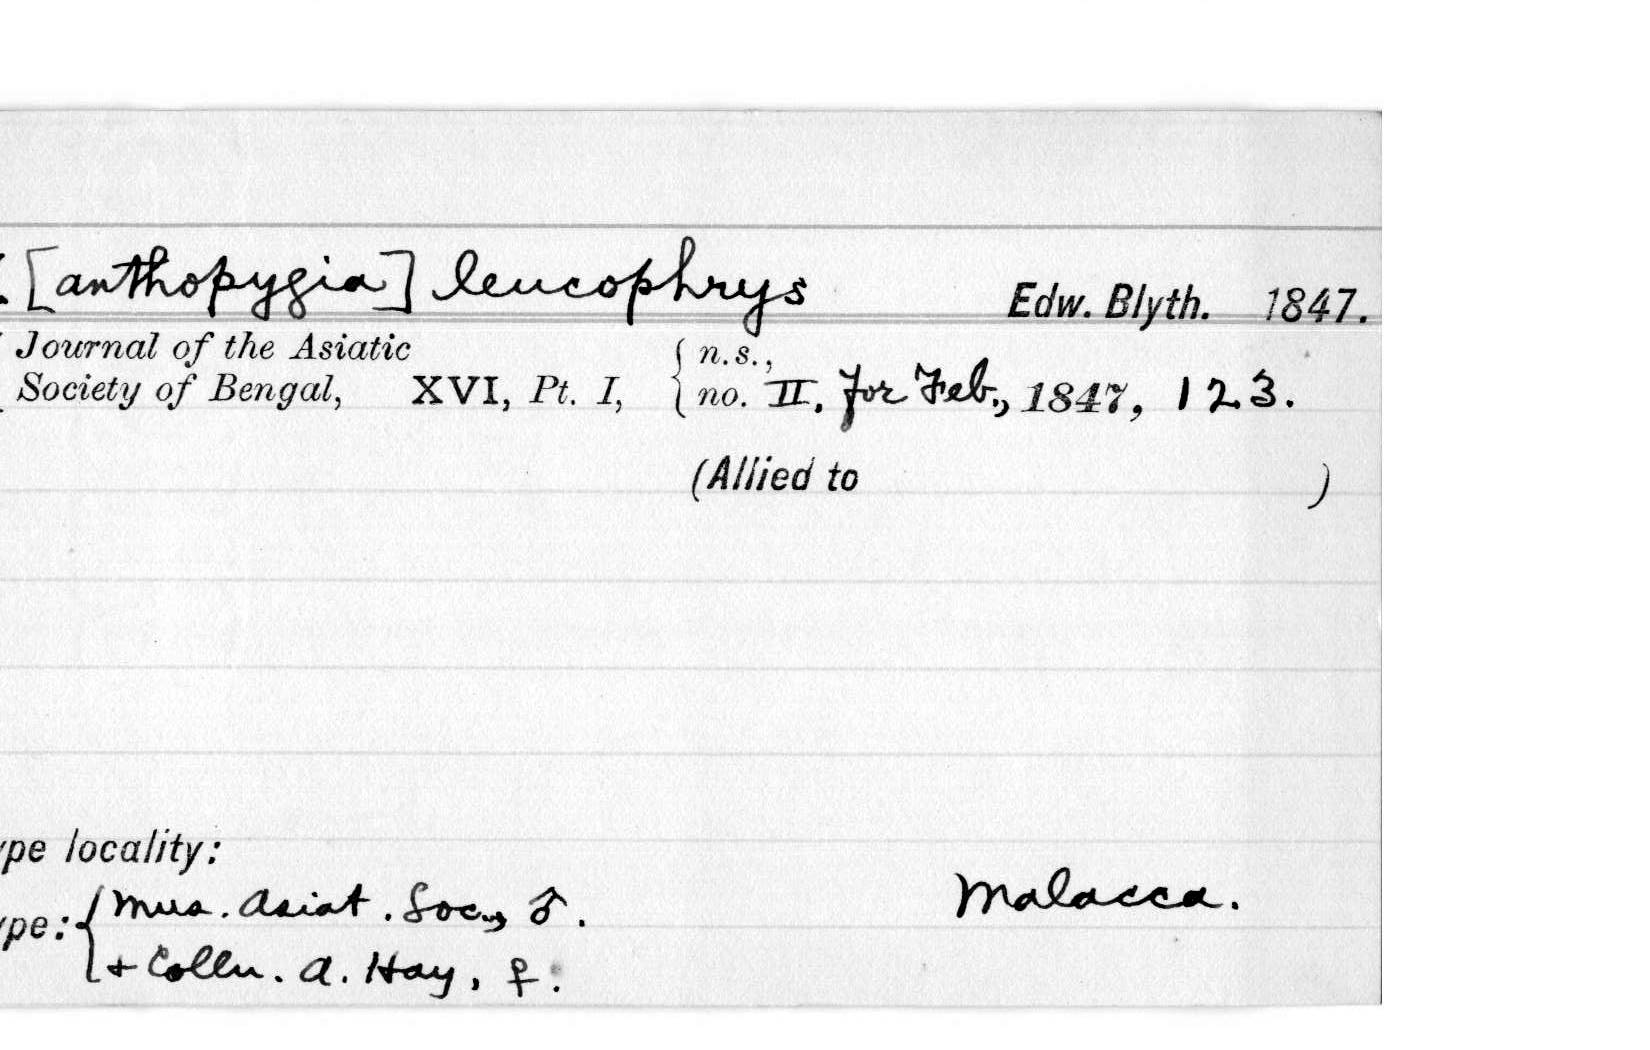 . [anthopygia] leucophrys Edw. Blyth. 1847.
Journal of the Asiatic { n.s.,
Society of Bengal, XVI, Pt. I, { no. II, for Feb., 1847, 123.
(Allied to )
ype locality:
Malacca.
ype: { Mus. Asiat. Soc., ♂.
+ Colln. A. Hay, ♀.